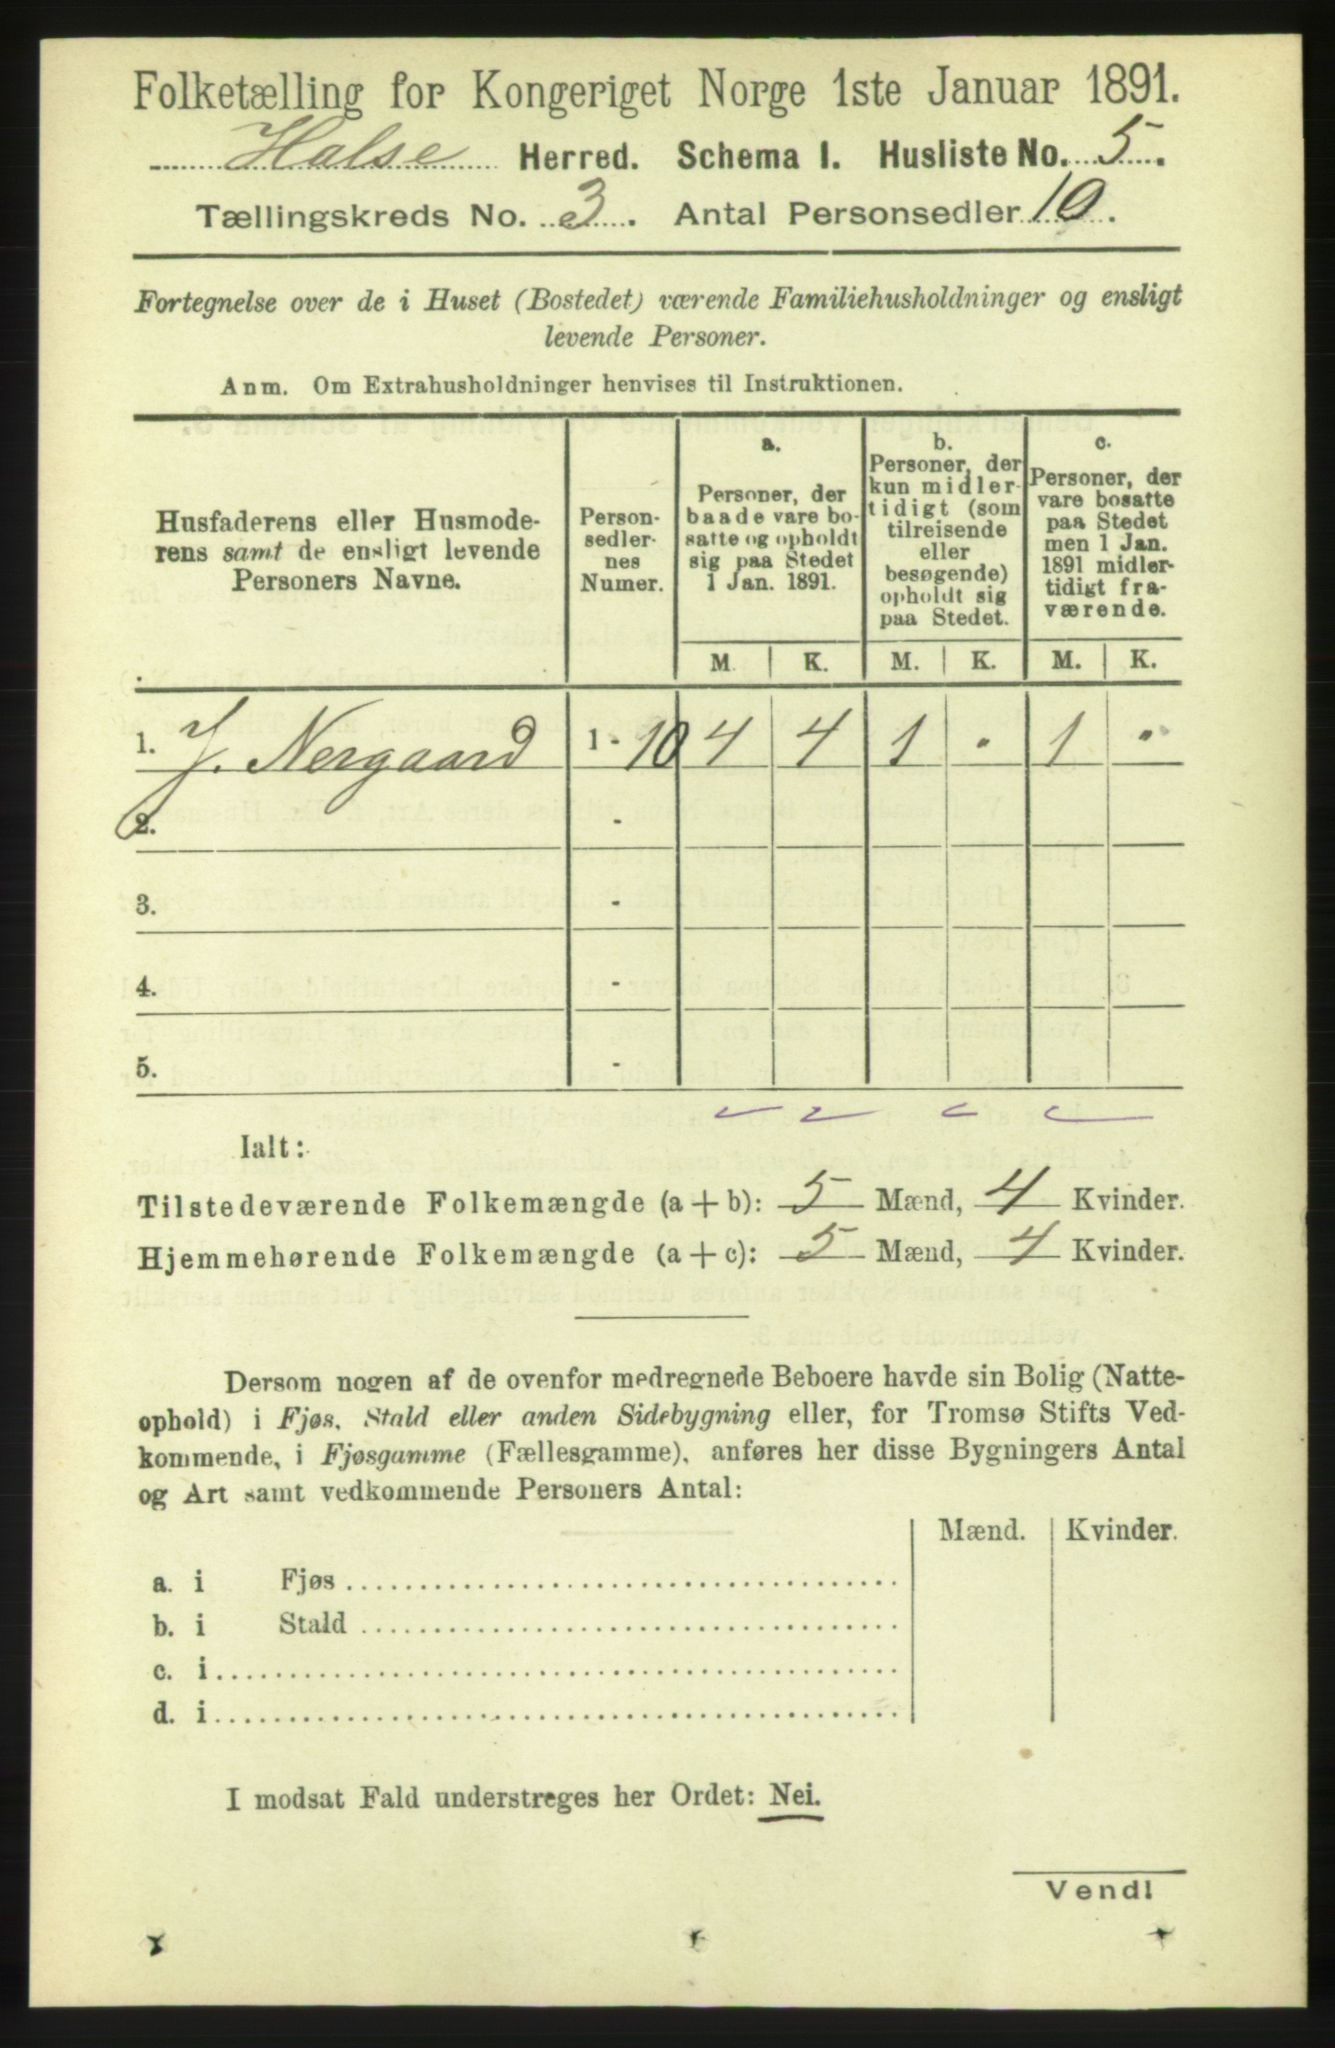 Folketælling for Kongeriget Norge 1ste Januar 1891.
Halse Herred. Schema I. Husliste No. 5.
Tællingskreds No. 3. Antal Personsedler 10.
Fortegnelse over de i Huset (Bostedet) værende Familiehusholdninger og ensligt
levende Personer.
Anm. Om Extrahusholdninger henvises til Instruktionen.
Husfaderens eller Husmode-
rens samt de ensligt levende
Personers Navne.
Person-
sedler-
nes
Numer.
a.
Personer, der
baade vare bo-
satte og opholdt
sig paa Stedet
1 Jan. 1891.
b.
Personer, der
kun midler-
tidigt (som
tilreisende
eller
besøgende)
opholdt sig
paa Stedet.
c.
Personer, der
vare bosatte
paa Stedet
men 1 Jan.
1891 midler-
tidigt fra-
værende.
M. K. M. K. M. K.
1. J. Nergaard 1 - 10 4 4 1 - 1 -
2. -
3. -
4. -
5. -
Ialt:
Tilstedeværende Folkemængde (a + b): 5 Mænd, 4 Kvinder.
Hjemmehørende Folkemængde (a + c): 5 Mænd, 4 Kvinder.
Dersom nogen af de ovenfor medregnede Beboere havde sin Bolig (Natte-
ophold) i Fjøs, Stald eller anden Sidebygning eller, for Tromsø Stifts Ved-
kommende, i Fjøsgamme (Fællesgamme), anføres her disse Bygningers Antal
og Art samt vedkommende Personers Antal:
Mænd. Kvinder.
a. i Fjøs
b. i Stald
c. i
d. i
I modsat Fald understreges her Ordet: Nei.
Vend!